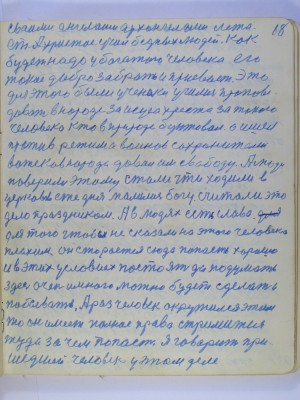 своими ангелами архангелами лета
18
учий бедных людей. Как
будет надо у богатого человека его
только добро забрать и привезт. Это
для этого были ученики учили пропове
довать в народе за Исуса Христа за такого
человека кто в природе бунтовал. а шел
против режима воинов сохранители
вот ев народе давал им свободу. А люди
поверили этому стали что ходили в
церковь эти дня молились богу, считали это
дело праздником. А в людях есть слава.
для того чтобы не сказали на этого человека
плохим, он старается сюда попасть хорошо
и в этих условиях
здесь очень много можно будет сделать
побывать, А раз человек окружился этим
то он имеет полное право стремитись
туда за чем попаст. Я говорит при-
шедшей человек у этом деле